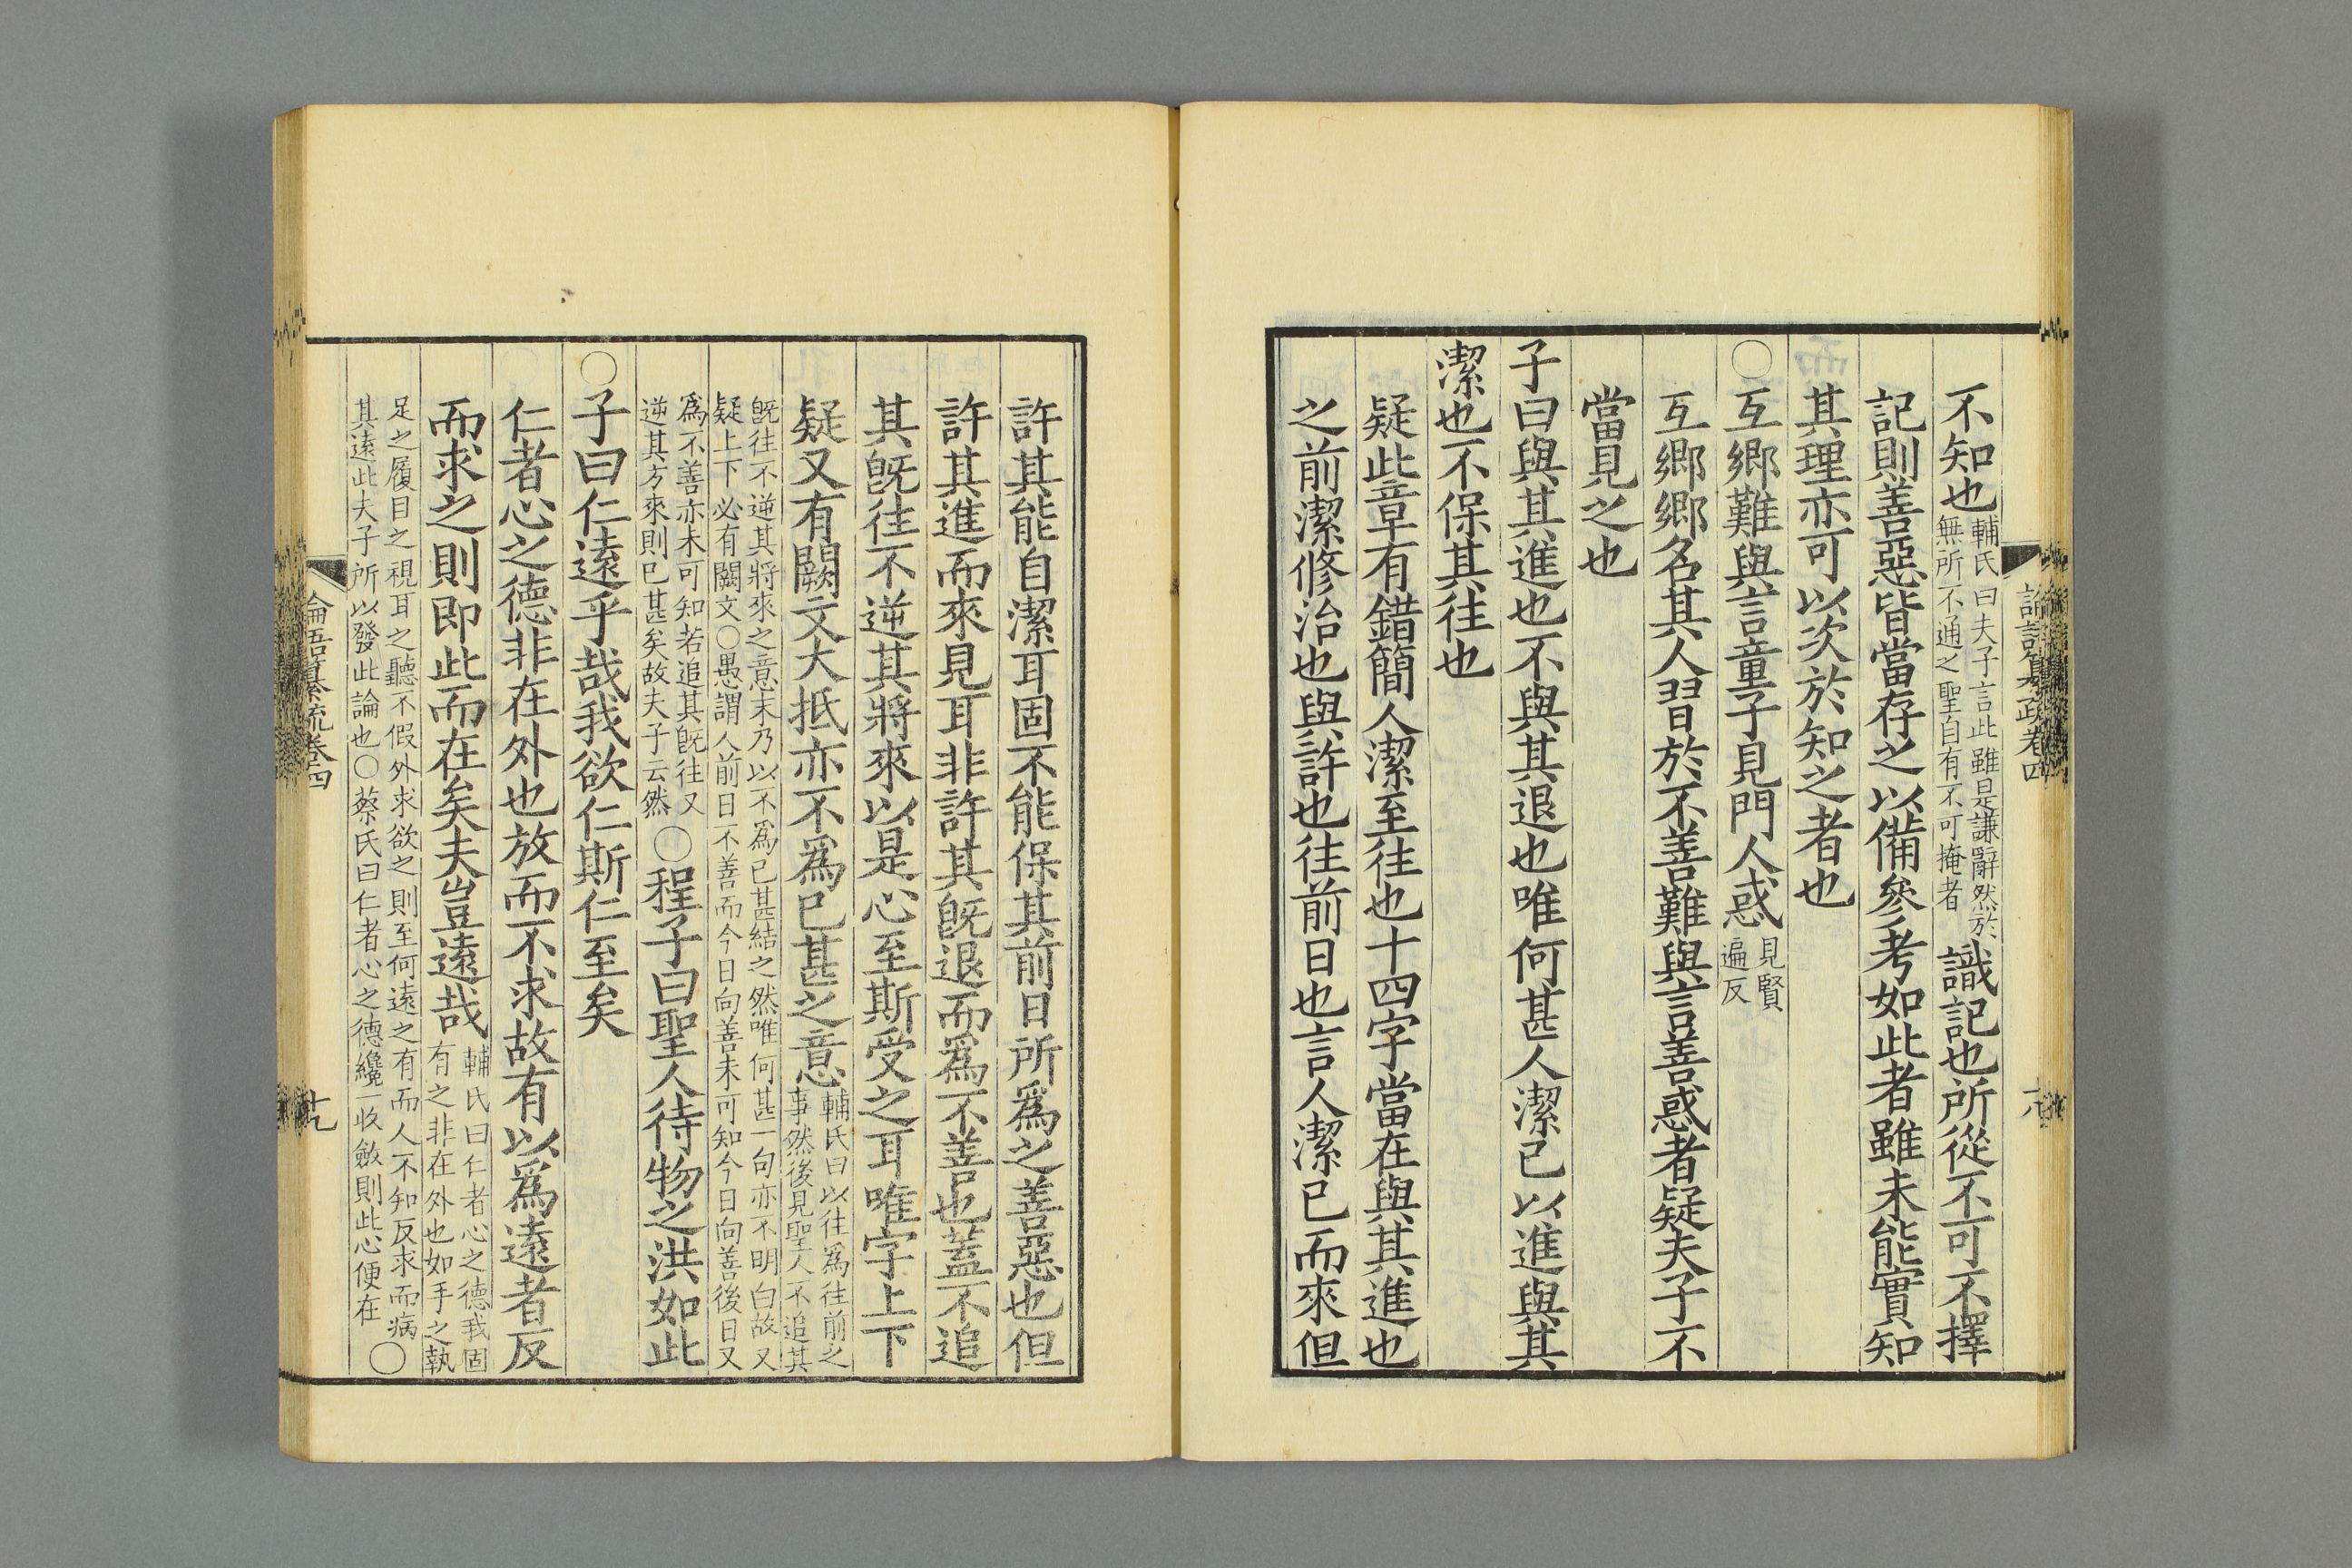 不知也輔氏曰夫子言此雖是謙辭然於無所不通之聖自有不可掩者識記也所從不可不擇
記則善惡皆當存之以備參考如此者雖未能實知
其理亦可以次於知之者也
〇互鄉難與言童子見門人惑見賢遍反
互鄉鄉名其人習於不善難與言善惑者疑夫子不
當見之也
子曰與其進也不與其退也唯何甚人潔己以進與其
潔也不保其往也
疑此章有錯簡人潔至往也十四字當在與其進也
之前潔修治也與許也往前日也言人潔已而來但
許其能自潔耳固不能保其前日所爲之善惡也但
許其進而來見耳非許其旣退而爲不善也蓋不追
其旣往不逆其將來以是心至斯受之耳唯字上下
疑又有闕文大抵亦不爲已甚之意輔氏曰以往爲往前之事然後見聖人不追其
旣往不逆其將來之意末乃以不爲已甚結之然唯何甚一句亦不明白故又疑上下必有闕文〇愚謂人前日不善而今日向善未可知今日向善後日又
爲不善亦未可知若追其旣往又逆其方來則已甚矣故夫子云然〇程子曰聖人待物之洪如此
〇子曰仁遠乎哉我欲仁斯仁至矣
仁者心之德非在外也放而不求故有以爲遠者反
而求之則即此而在矣夫豈遠哉輔氏曰仁者心之德我固有之非在外也如手之執
足之履目之視耳之聽不假外求欲之則至何遠之有而人不知反求而病其遠此夫子所以發此論也〇蔡氏曰仁者心之德纔一收斂則此心便在〇
論語纂疏卷四